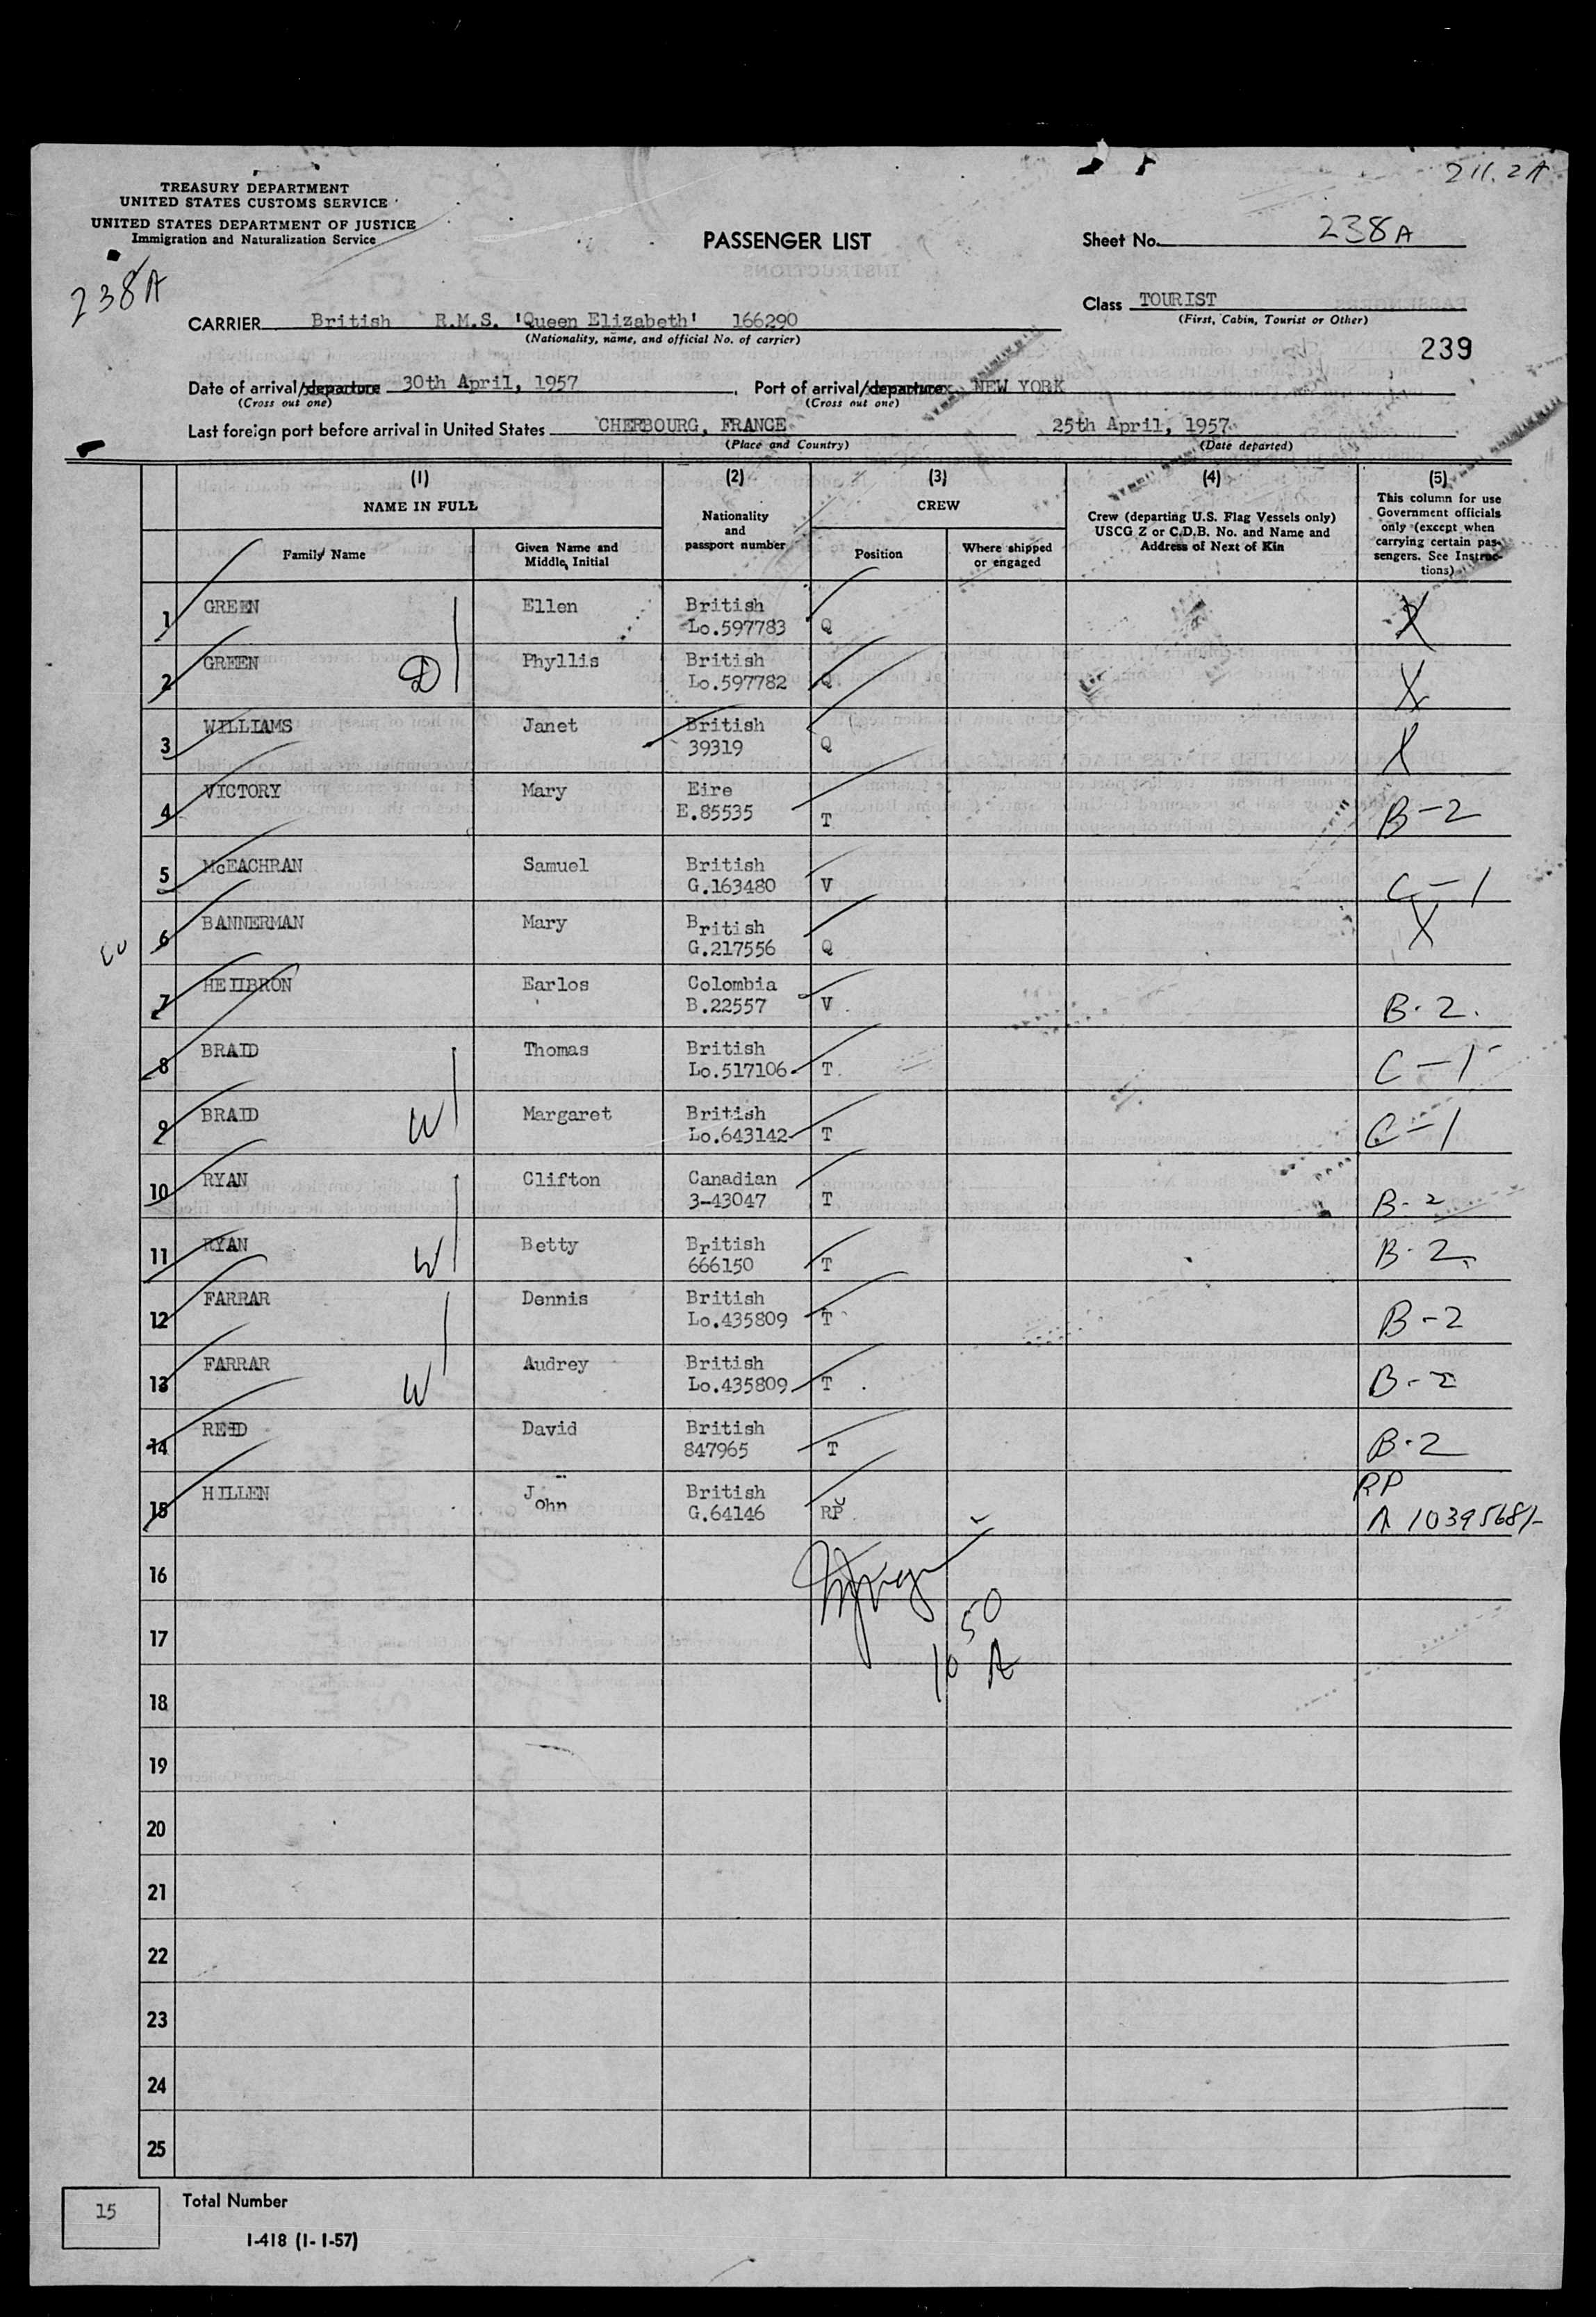 211.2A
TREASURY DEPARTMENT
UNITED STATES CUSTOMS SERVICE
UNITED STATES DEPARTMENT OF JUSTICE
Immigration and Naturalization Service
238A
PASSENGER LIST
Sheet No. 238A
Class TOURIST
(First, Cabin, Tourist or Other)
CARRIER British R.M.S. 'Queen Elizabeth' 166290
(Nationality, name, and official No. of carrier)
239
Date of arrival/departure 30th April, 1957. Port of arrival/departure NEW YORK
(Cross out one) (Cross out one)
Last foreign port before arrival in United States CHERBOURG, FRANCE 25th April, 1957
(Place and Country) (Date departed)
(1) (2) (3) (4) (5)
NAME IN FULL
Family Name
Given Name and Middle Initial
Nationality and passport number
CREW
Position
Where shipped or engaged
Crew (departing U.S. Flag Vessels only)
USCG Z or C.D.B. No. and Name and
Address of Next of Kin
This column for use
Government officials
only (except when
carrying certain pas-
sengers. See Instruc-
tions)
1 GREEN Ellen British Lo.597783 Q X
2 GREEN D Phyllis British Lo.597782 Q X
3 WILLIAMS Janet British 39319 Q X
4 VICTORY Mary Eire E.85535 T B-2
5 McEACHRAN Samuel British G.163480 V C-1
6 BANNERMAN Mary British G.217556 Q X
7 HEIIBRON Earlos Colombia B.22557 V B-2.
8 BRAID Thomas British Lo.517106 T C-1
9 BRAID W Margaret British Lo.643142 T C-1
10 RYAN Clifton Canadian 3-43047 T B-2
11 RYAN W Betty British 666150 T B-2
12 FARRAR Dennis British Lo.435809 T B-2
13 FARRAR W Audrey British Lo.435809 T B-2
14 REID David British 847965 T B-2
15 HILLEN John British G.64146 RP RP A 10395681-
16
50
17
10 A
18
19
20
21
22
23
24
25
15 Total Number
I-418 (1-1-57)